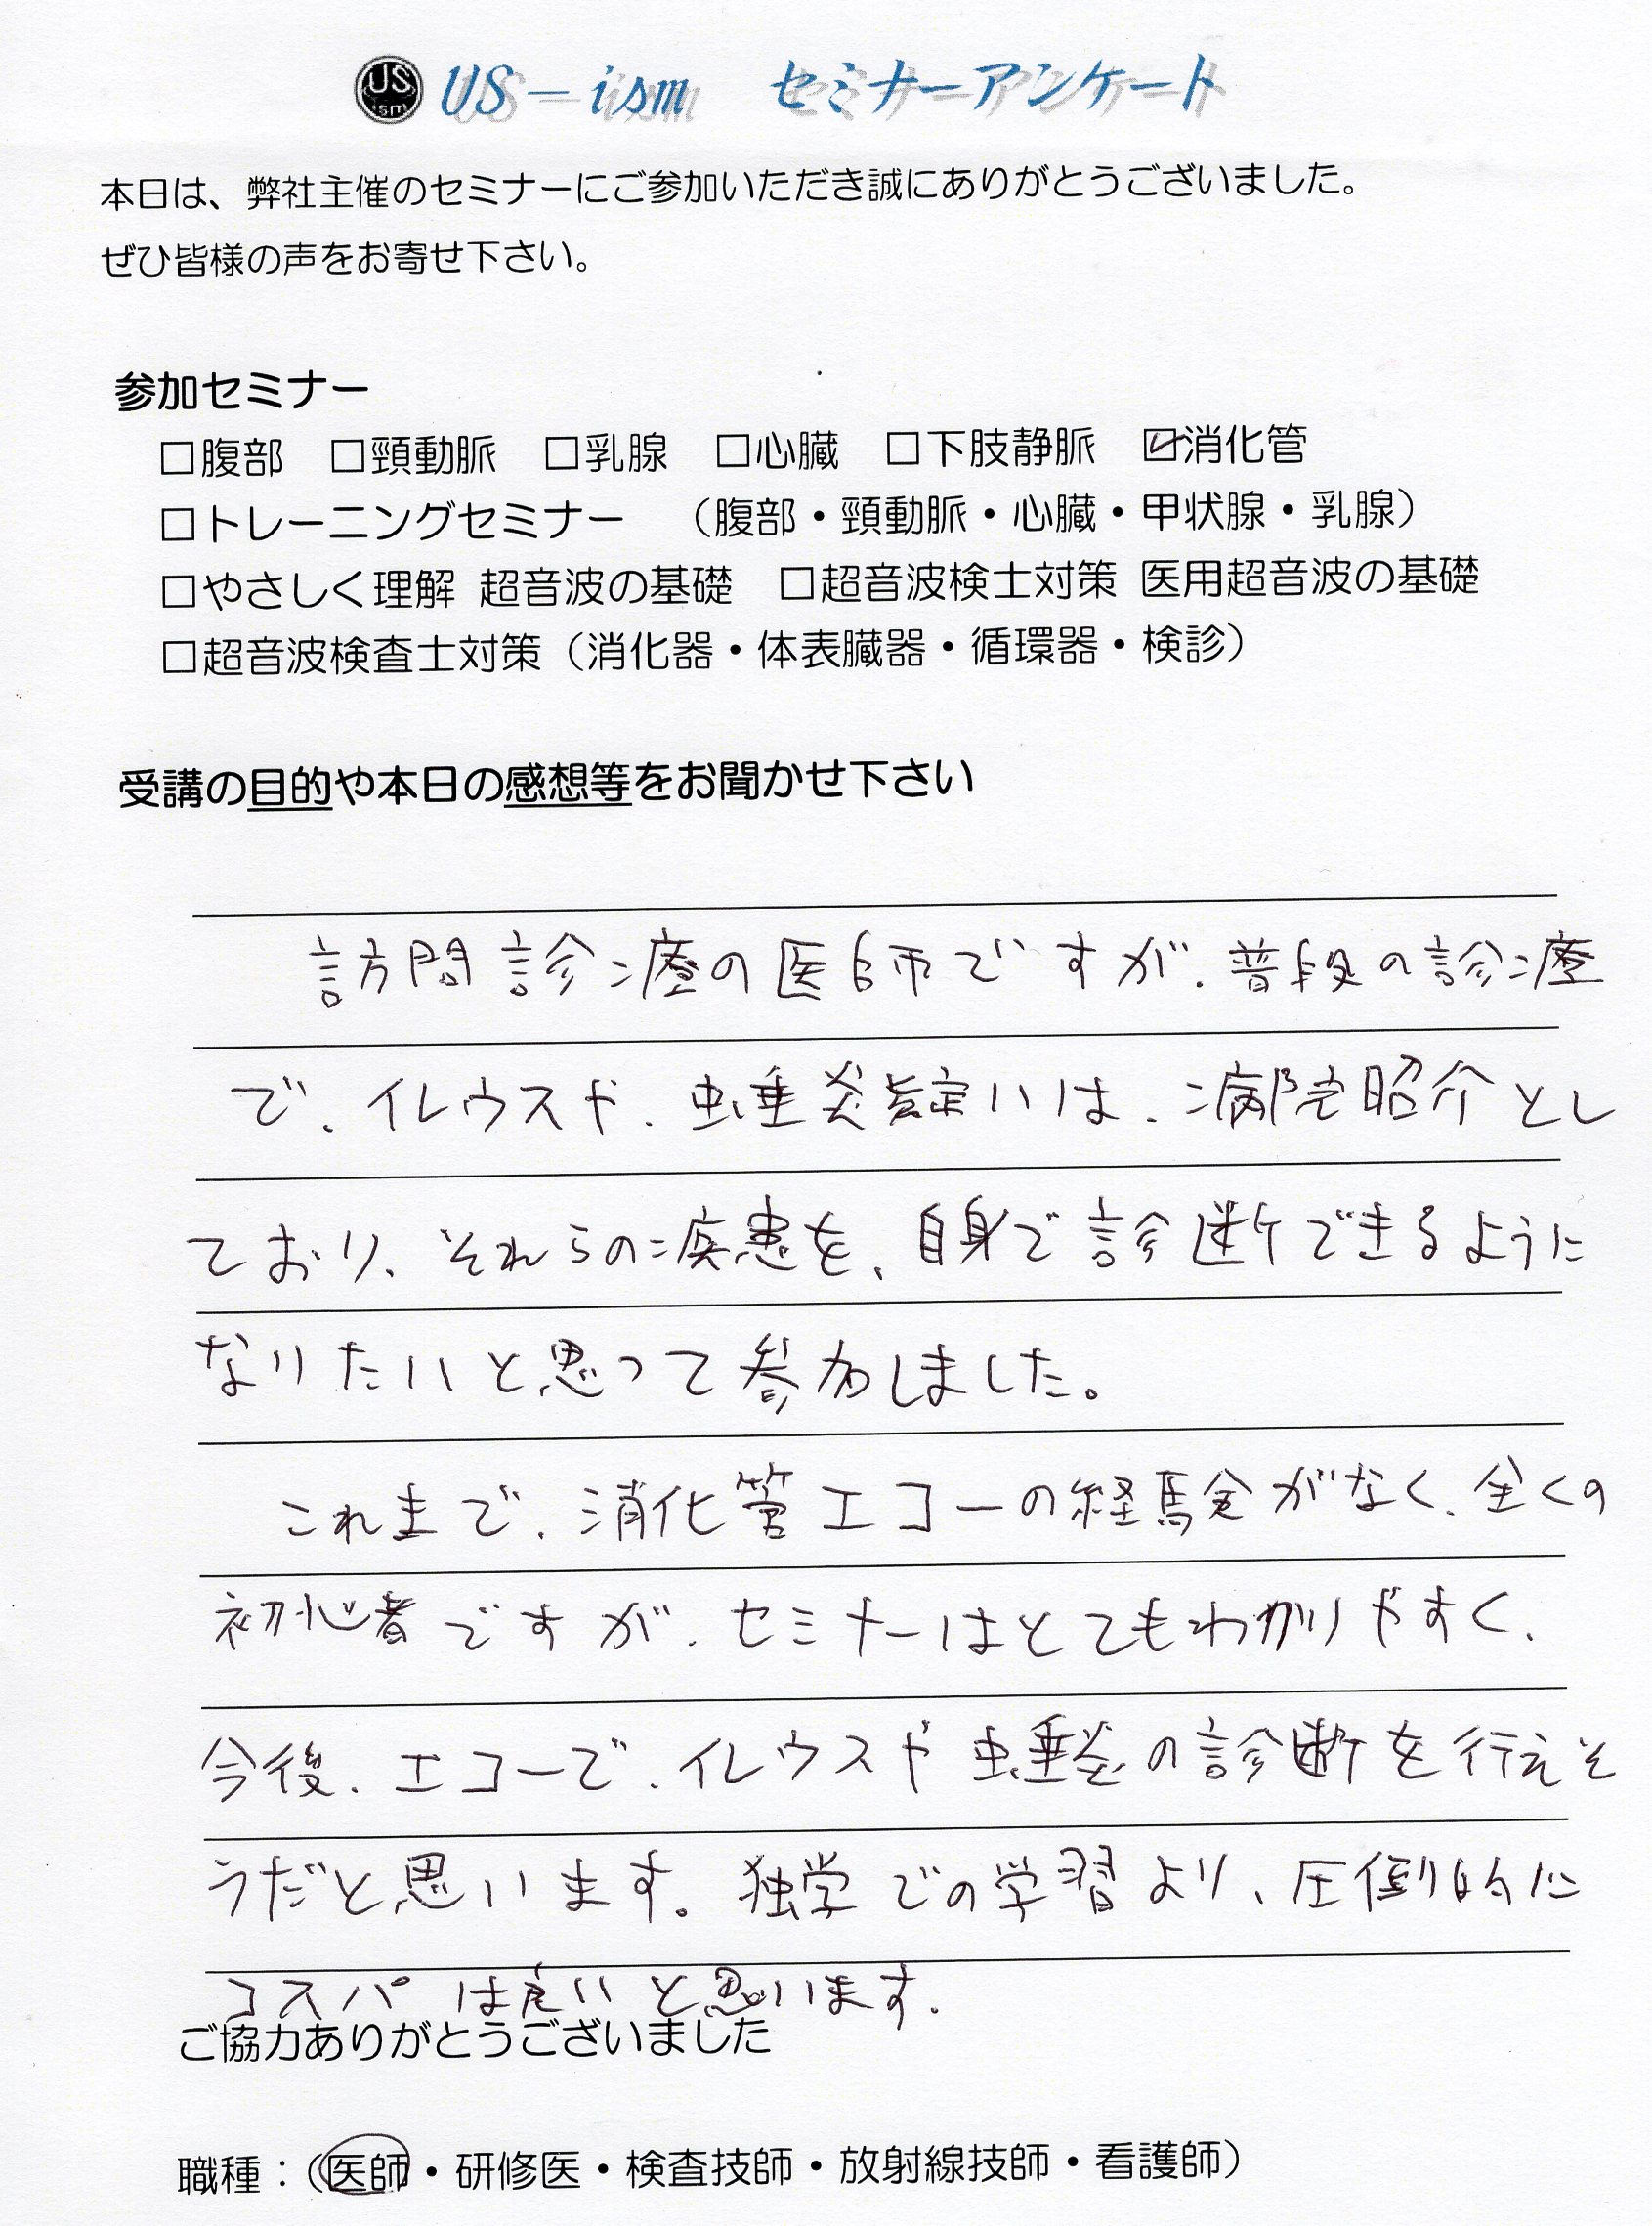 US ism US-ism セミナーアンケート
本日は、弊社主催のセミナーにご参加いただき誠にありがとうございました。
ぜひ皆様の声をお寄せ下さい。
参加セミナー
□腹部 □頸動脈 □乳腺 □心臓 □下肢静脈 ☑消化管
□トレーニングセミナー （腹部・頸動脈・心臓・甲状腺・乳腺）
□やさしく理解 超音波の基礎 □超音波検士対策 医用超音波の基礎
□超音波検査士対策（消化器・体表臓器・循環器・検診）
受講の目的や本日の感想等をお聞かせ下さい
訪問診療の医師ですが、普段の診療
で、イレウスや、虫垂炎疑いは、病院紹介とし
ており、それらの疾患を、自身で診断できるように
なりたいと思って参加しました。
これまで、消化管エコーの経験がなく、全くの
初心者ですが、セミナーはとてもわかりやすく、
今後、エコーで、イレウスや虫垂炎の診断を行えそ
うだと思います。独学での学習より、圧倒的に
コスパは良いと思います。
ご協力ありがとうございました
職種：（医師・研修医・検査技師・放射線技師・看護師）